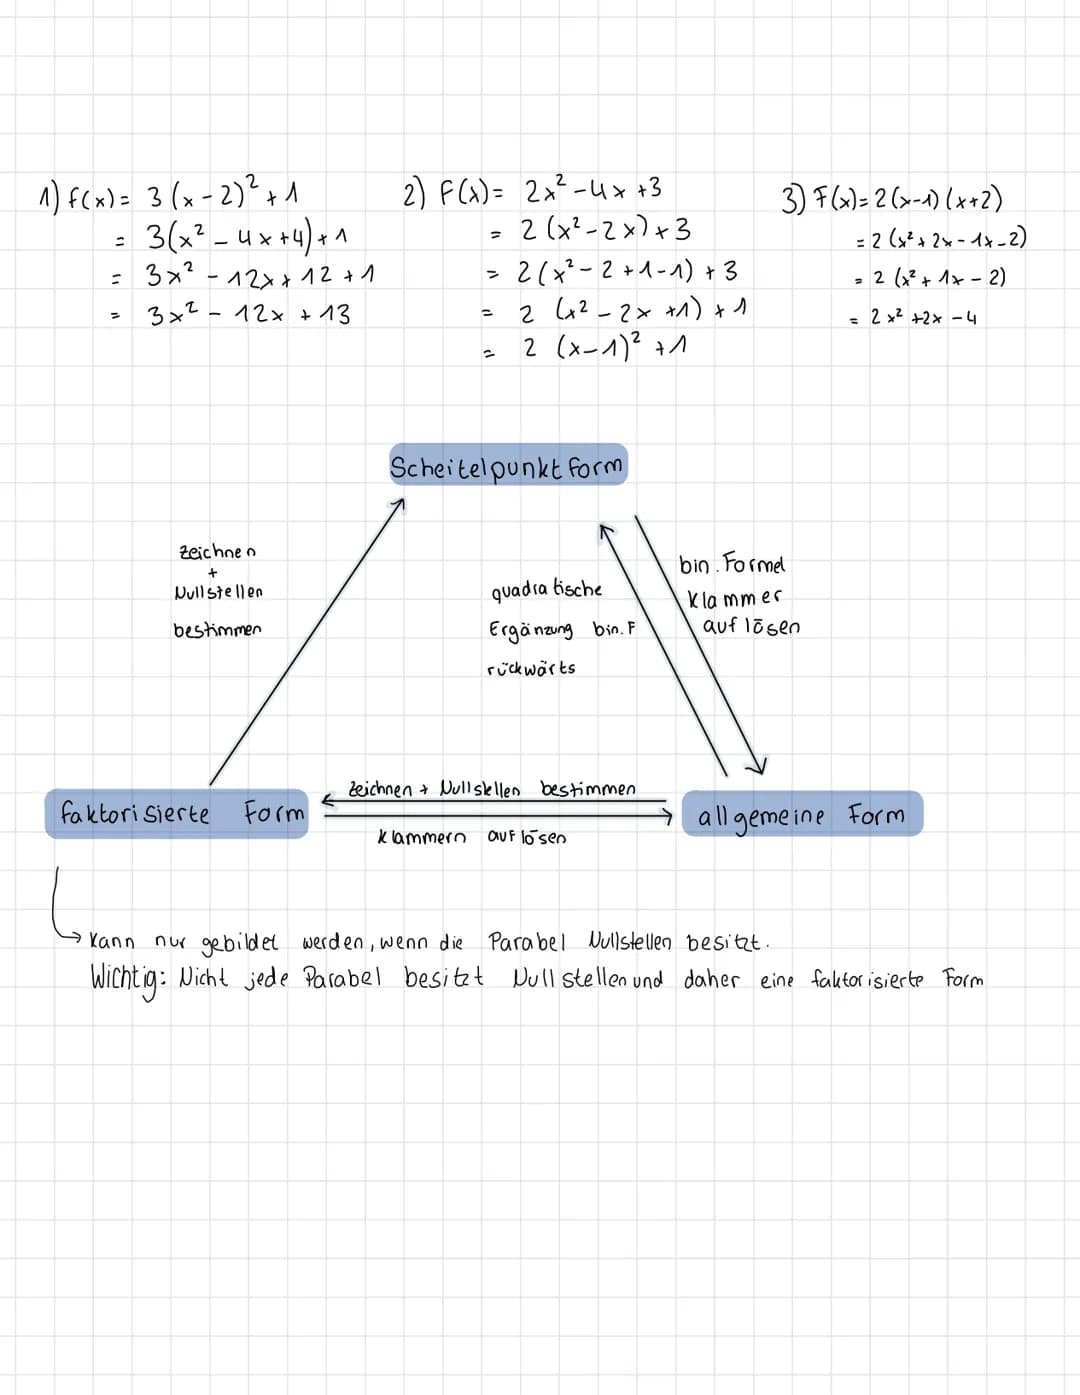 1) f(x) = 3(x-2)² + 1
= 3(x² - 4x+4) + 1
= 3x² - 12x + 12 + 1
= 3x² - 12x + 13
2) F(x) = 2x² - 4x + 3
= 2(x² - 2x) + 3
= 2(x² - 2 + 1 - 1) + 3
= 2 (x² - 2x + 1) + 1
= 2 (x-1)² + 1
3) F(x) = 2(x-1)(x+2)
= 2(x² + 2x - 1x - 2)
= 2 (x² + 1x - 2)
= 2x² + 2x - 4
Scheitelpunkt form
zeichnen
+
Nullstellen
bestimmen
quadratische
Ergänzung bin. F
rückwärts
bin. Formel
Klammer
auf lösen
faktorisierte Form
zeichnen + Nullstellen bestimmen
Klammern auf lösen
allgemeine Form
Kann nur gebildet werden, wenn die Parabel Nullstellen besitzt.
Wichtig: Nicht jede Parabel besitzt Nullstellen und daher eine faktorisierte Form